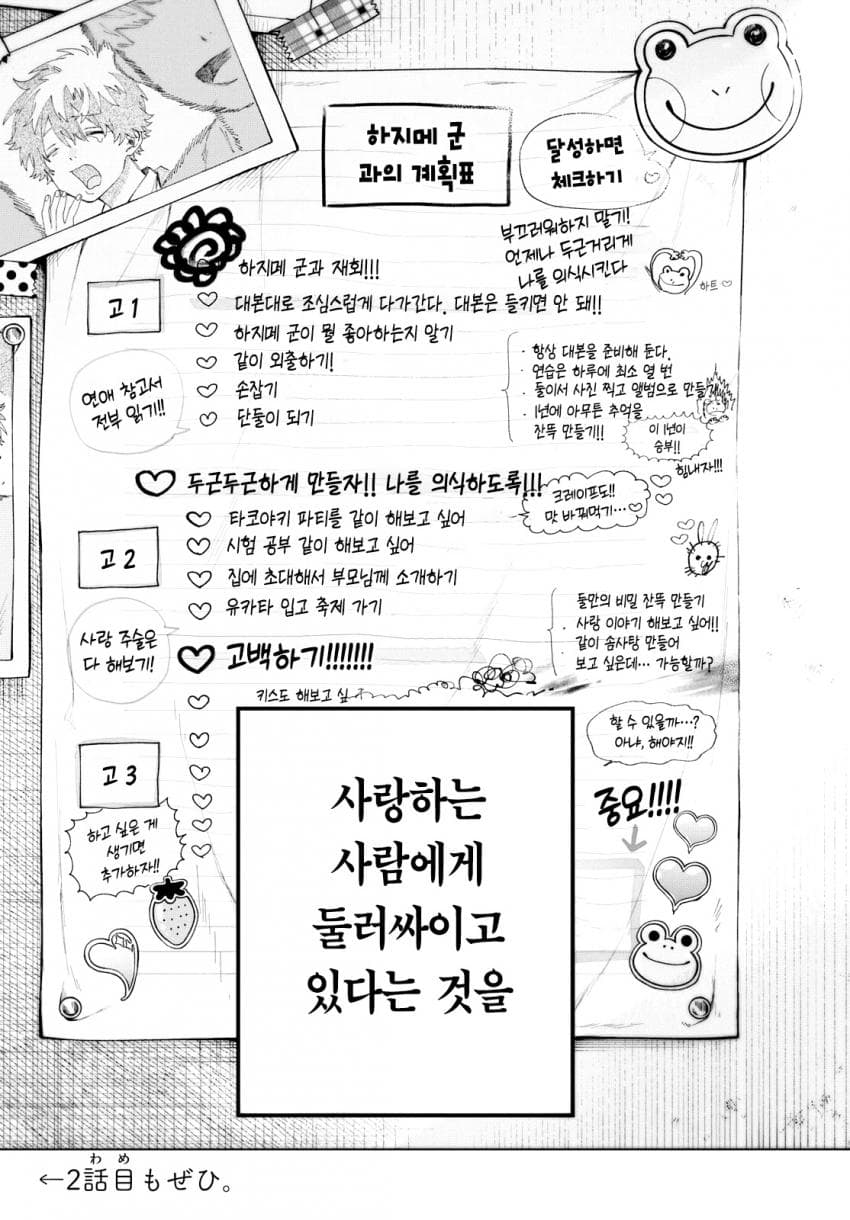 하지메 군
과의 계획표
달성하면
체크하기
부끄러워하지 말기!
언제나 두근거리게
나를 의식시킨다
하트
고1
하지메 군과 재회!!!
대본대로 조심스럽게 다가간다. 대본은 들키면 안 돼!!
하지메 군이 뭘 좋아하는지 알기
같이 외출하기!
손잡기
단둘이 되기
연애 참고서
전부 읽기!!
· 항상 대본을 준비해 둔다.
· 연습은 하루에 최소 열 번
· 둘이서 사진 찍고 앨범으로 만들기
· 1년에 아무튼 추억을
잔뜩 만들기!!
이 1년이
승부!!
힘내자!!!
두근두근하게 만들자!! 나를 의식하도록!!!
타코야키 파티를 같이 해보고 싶어
시험 공부 같이 해보고 싶어
집에 초대해서 부모님께 소개하기
유카타 입고 축제 가기
크레이프도!!
맛 바꿔먹기…
고2
사랑 주술은
다 해보기!
둘만의 비밀 잔뜩 만들기
· 사랑 이야기 해보고 싶어!!
· 같이 솜사탕 만들어
보고 싶은데… 가능할까?
고백하기!!!!!!!
키스도 해보고 싶
할 수 있을까…?
아냐, 해야지!!
고3
하고 싶은 게
생기면
추가하자!!
중요!!!!
사랑하는
사람에게
둘러싸이고
있다는 것을
わ め
←2話目もぜひ。